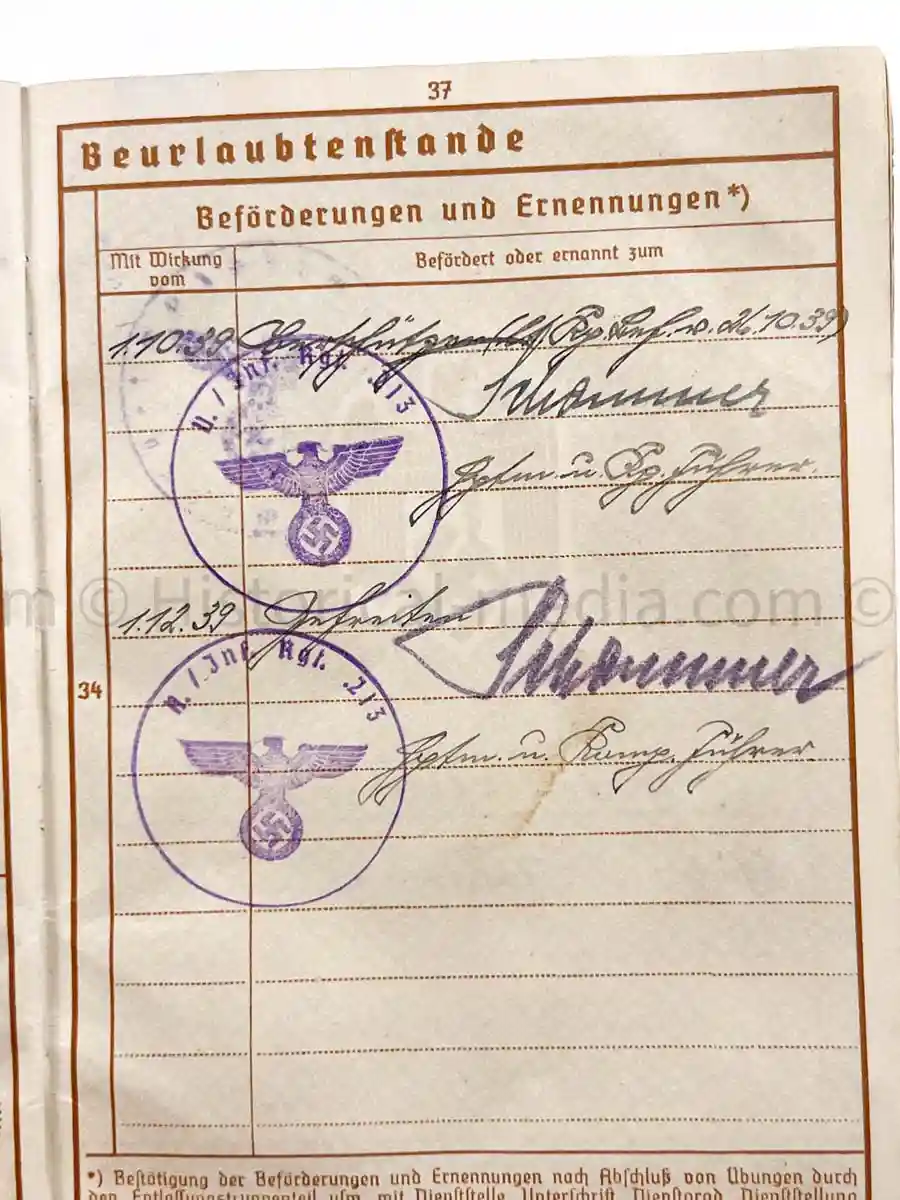 37
Beurlaubtenstande
Beförderungen und Ernennungen*)
Mit Wirkung
vom
Befördert oder ernannt zum
1.10.39 Oberschützen (lt. Kp. Bef. v. 26.10.39)
Schammer
Hptm. u. Kp. Führer.
Inf. Rgt. 213
© Historical-media.com ©
1.12.39 Gefreiten
Schammer
Inf. Rgt. 213
34
Hptm. u. Komp. Führer
*) Bestätigung der Beförderungen und Ernennungen nach Abschluß von Übungen durch
den Entlassungstruppenteil usw. mit Dienststelle, Unterschrift, Dienstgrad, Dienststellung